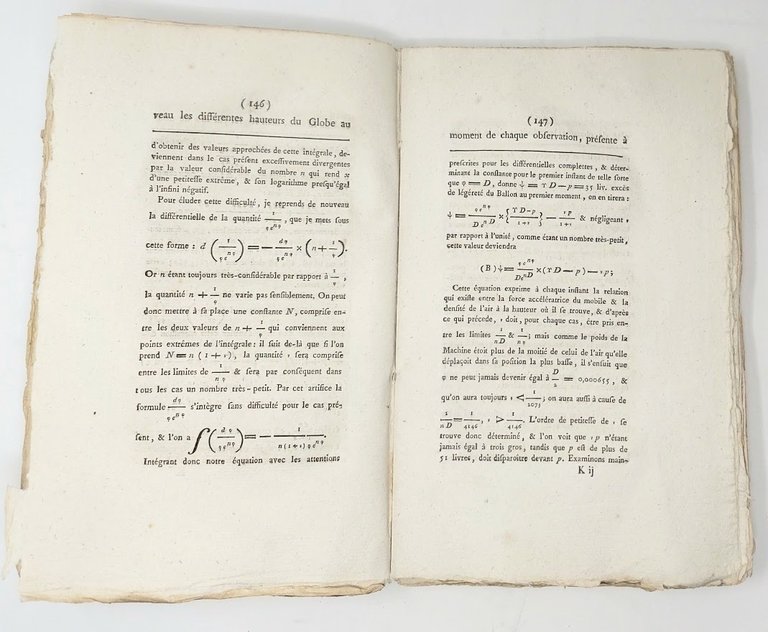 ( 146 )
veau les différentes hauteurs du Globe au
d'obtenir des valeurs approchées de cette intégrale, de-
viennent dans le cas présent excessivement divergentes
par la valeur considérable du nombre n qui rend x
d'une petitesse extrême, & son logarithme presqu'égal
à l'infini négatif.
Pour éluder cette difficulté, je reprends de nouveau
la différentielle de la quantité 1/(φe^{nφ}), que je mets sous
cette forme : d (1/(φe^{nφ})) = — dφ/(φe^{nφ}) × (n + 1/φ).
Or n étant toujours très-considérable par rapport à 1/φ,
la quantité n + 1/φ ne varie pas sensiblement. On peut
donc mettre à sa place une constante N, comprise en-
tre les deux valeurs de n + 1/φ qui conviennent aux
points extrêmes de l'intégrale : il suit de-là que si l'on
prend N = n ( 1 + ε ), la quantité ε sera comprise
entre les limites de 1/(nφ) & sera par conséquent dans
tous les cas un nombre très-petit. Par cet artifice la
formule dφ/(φe^{nφ}) s'intègre sans difficulté pour le cas pré-
sent, & l'on a ∫(dφ/(φe^{nφ})) = — 1/(n(1+ε)φe^{nφ}).
Intégrant donc notre équation avec les attentions
( 147 )
moment de chaque observation, présente à
prescrites pour les différentielles complettes, & déter-
minant la constante pour le premier instant de telle sorte
que φ = D, donne ψ = τD — p = 35 liv. excès
de légéreté du Ballon au premier moment, on en tirera :
ψ = φe^{nφ}/(De^{nD}) × {(τD—p)/(1+ε)} — εp/(1+ε) & négligeant ε
par rapport à l'unité, comme étant un nombre très-petit,
cette valeur deviendra
( B ) ψ = φe^{nφ}/(De^{nD}) × (τD — p) — εp;
Cette équation exprime à chaque instant la relation
qui existe entre la force accélératrice du mobile & la
densité de l'air à la hauteur où il se trouve, & d'après
ce qui précede, ε doit, pour chaque cas, être pris en-
tre les limites 1/(nD) & 1/(nφ) ; mais comme le poids de la
Machine étoit plus de la moitié de celui de l'air qu'elle
déplaçoit dans sa position la plus basse, il s'ensuit que
φ ne peut jamais devenir égal à D/2 = 0,000655, &
qu'on aura toujours ε < 1/2073 ; on aura aussi à cause de
1/(nD) = 1/4146, ε > 1/4146. L'ordre de petitesse de ε se
trouve donc déterminé, & l'on voit que εp n'étant
jamais égal à trois gros, tandis que p est de plus de
51 livres, doit disparoître devant p. Examinons main-
K ij